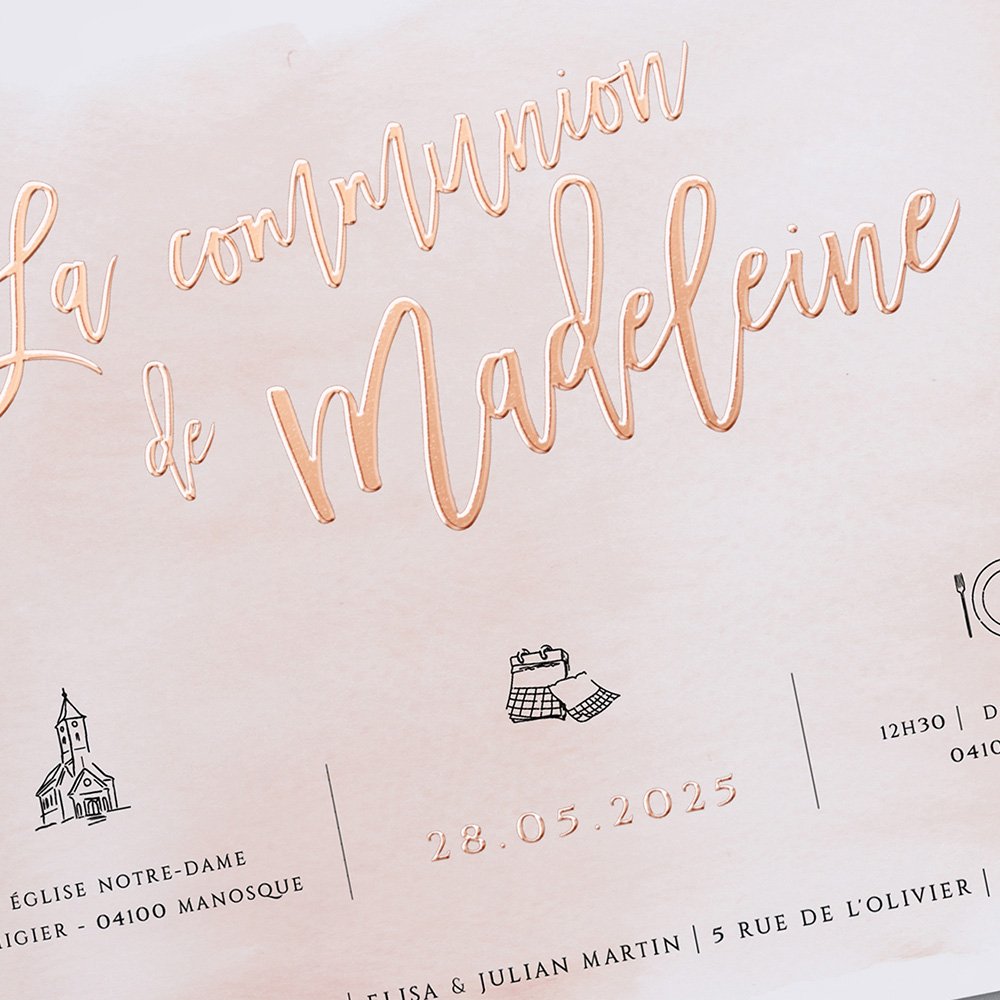 La communion
de Madeleine
ÉGLISE NOTRE-DAME
04100 MANOSQUE
28.05.2025
12H30 |
ELISA & JULIAN MARTIN | 5 RUE DE L'OLIVIER |